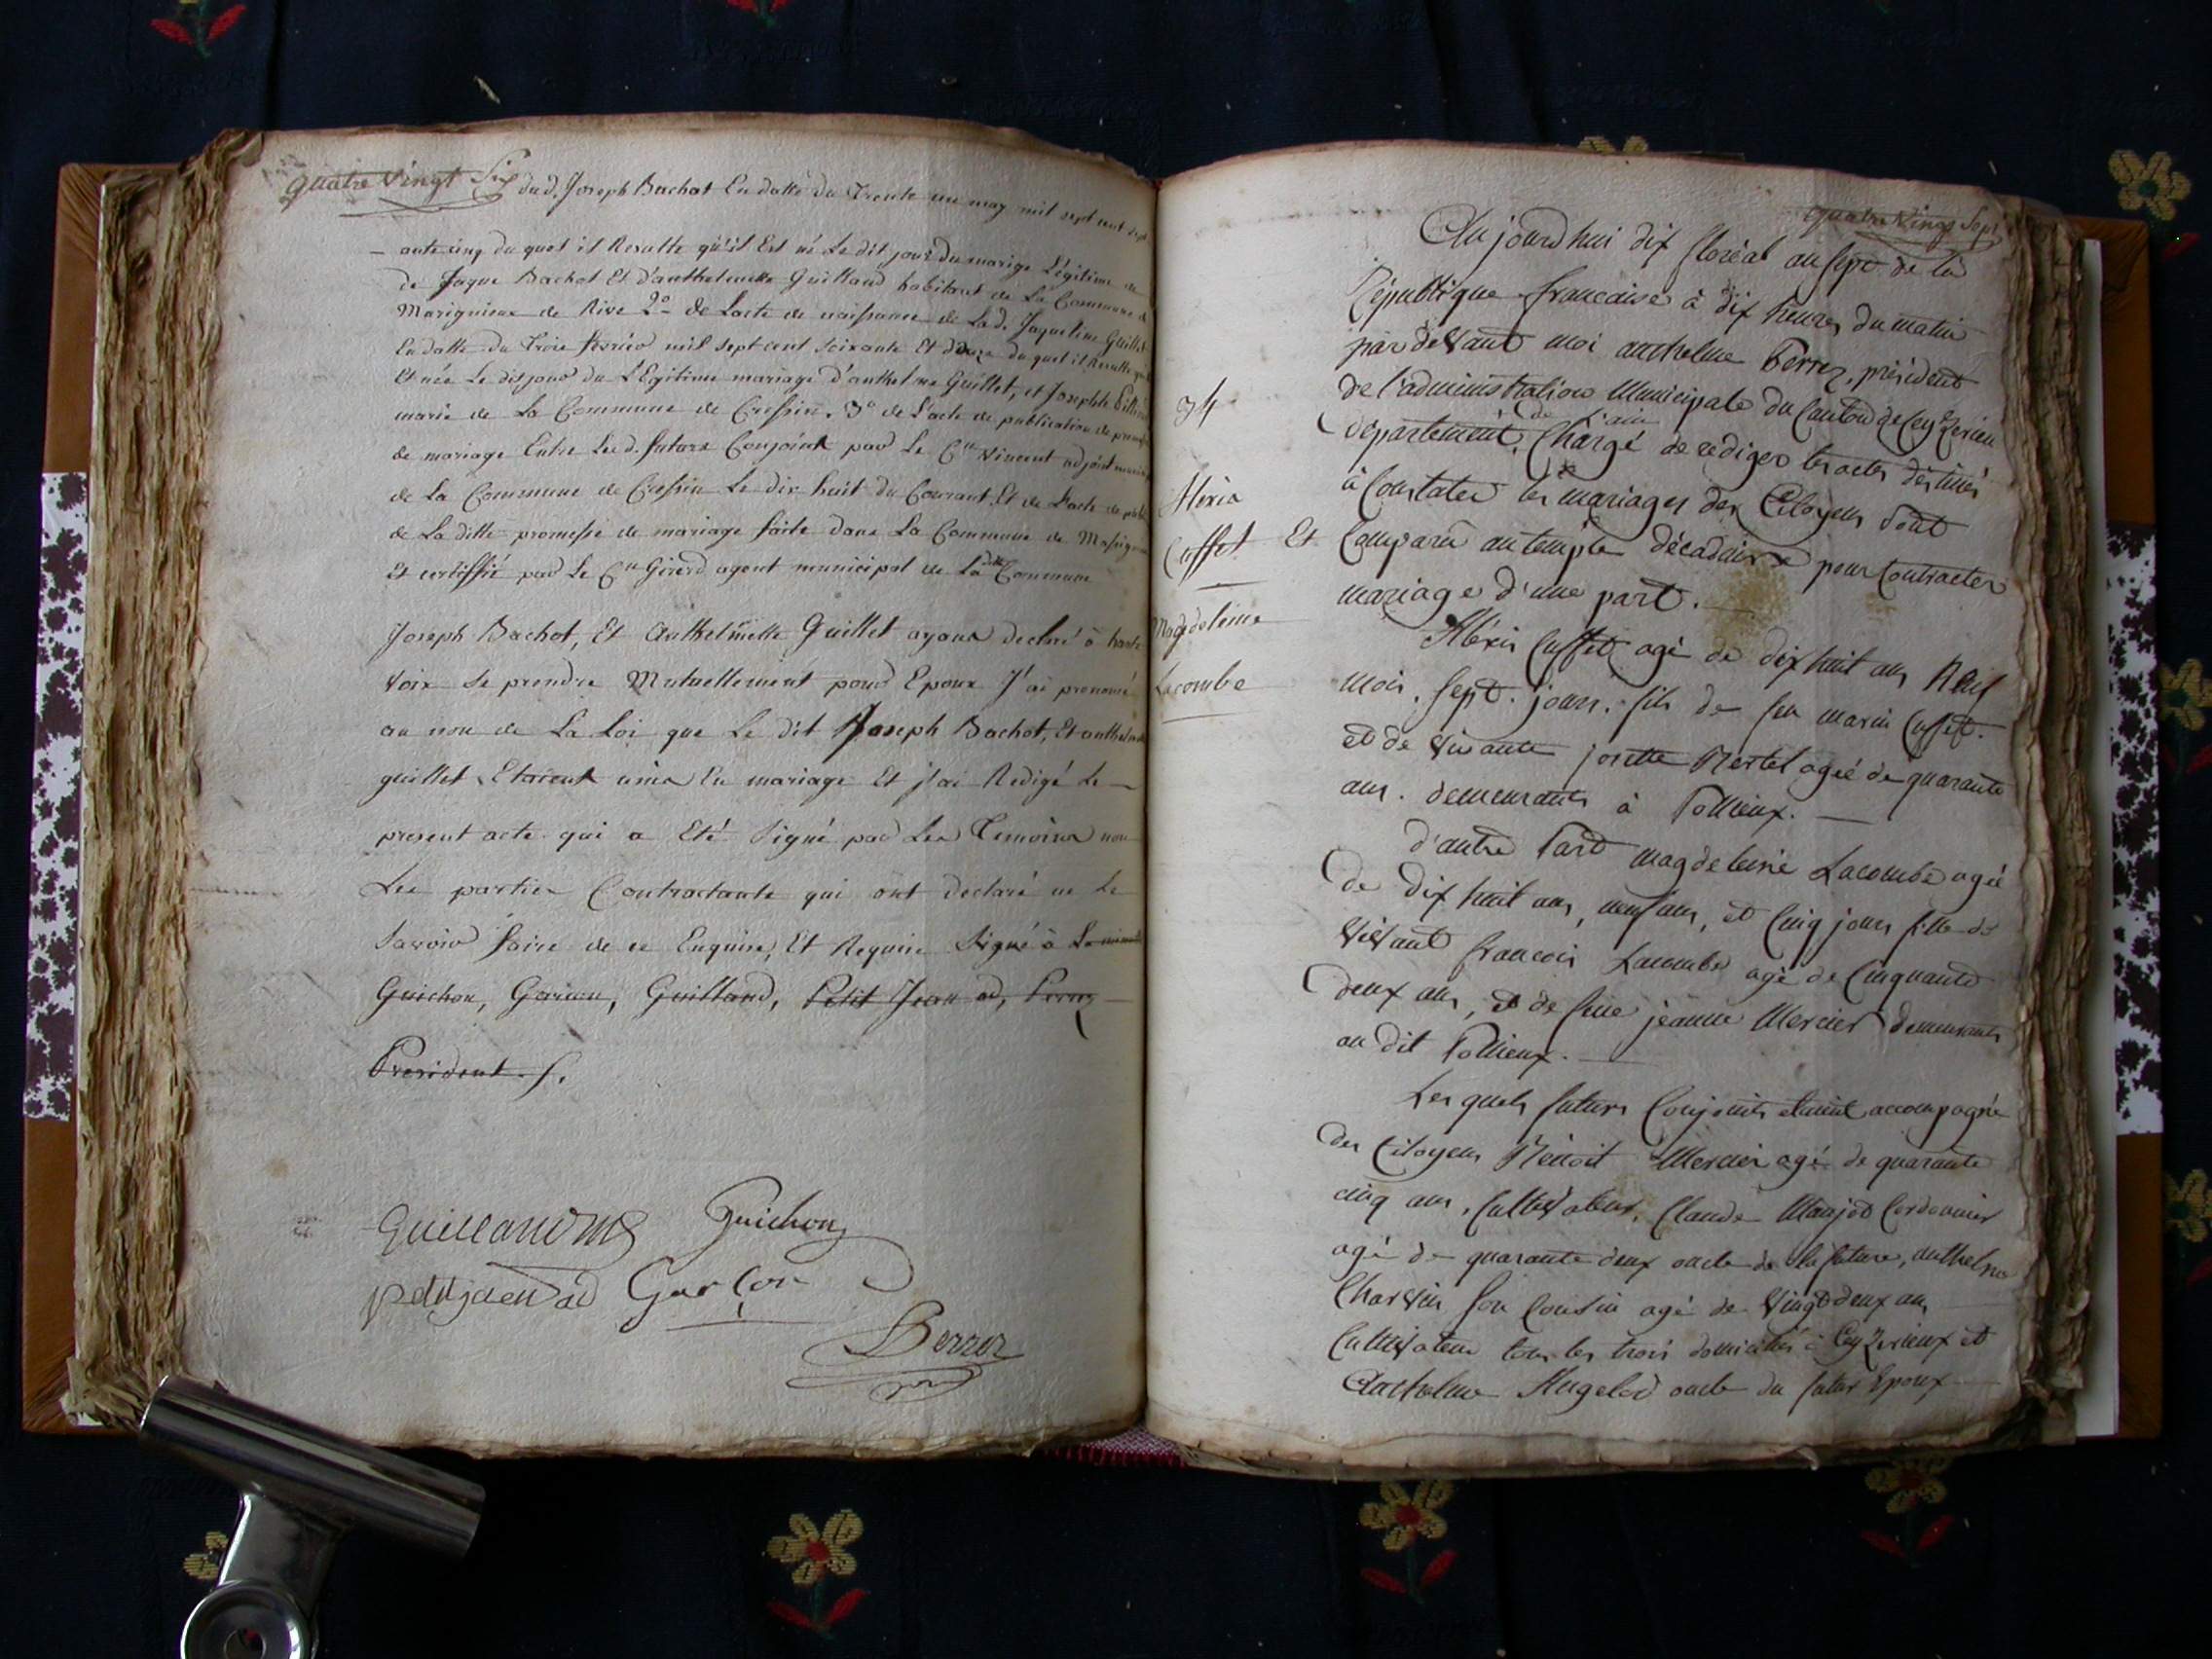 quatre Vingt Six
dud. Joseph Bachot En datte du Trente un may mil sept cent sept
ante cinq du quel il Resulte qu'il Est né Le dit jour du mariage Légitime de
de Jaque Bachot Et d'anthelmette Guilland habitant de La Commune de
Marignieux de Rive 2o de L'acte de naissance de La d. Jaqueline Guillet
En datte du Trois fevrier mil sept cent soixante Et du quel il Resulte
Et née Le dit jour du LEgitime mariage d'anthelme Guillet, et Josephte
marié de La Commune de Cressin. 3o de L'acte de publication de
de mariage Entre Les d. futurs Conjoint par Le Cen Vincent adjoint
de La Commune de Cressin Le dix huit du Courant Et de L'acte de
de La ditte promesse de mariage faite dans La Commune de
Et certiffié par Le Cen Girerd agent municipal de La ditte Commune
Joseph Bachot, Et Anthelmette Guillet ayant declaré à haute
voix se prendre Mutuellement pour Epoux J'ai prononcé
au nom de La Loi que Le dit Joseph Bachot, Et
guillet Etoient unis En mariage Et j'ai Redigé Le
present acte qui a Eté Signé par Les Temoins non
Les parties Contractante qui ont declaré ne Le
savoir faire de ce Enquise, Et Requise Signé à
Guichon, Guilland, Petit Jean ad, Perrez
President. f.
Guilland Guichon
petitjean ad Garçon
Perrez
quatre Vingt Sept
Au jourd'hui dix floréal an sept de la
République francaise à dix heures du matin
par devant moi anthelme Perrez, président
de l'administration Municipale du Canton de Ceyzerieu
département de l'ain Chargé de rediger les actes destinés
à Constater les mariages des Citoyens sont
Comparu au temple décadaire pour Contracter
mariage d'une part.
34
Alexis
Cuffet Et
Magdeleine
Lacombe
Alexis Cuffet agé de dix huit ans Neuf
mois, sept jours, fils de feu marin Cuffet
et de vivante josette Martel ageé de quarante
ans demeurants à Pollieux.
d'autre Part magdeleine Lacombe ageé
de dix huit ans, neuf ans, et Cinq jours fille de
vivant francois Lacombe agé de Cinquante
deux ans, et de feue jeanne Mercier demeurants
au dit Pollieux.
Les quels futurs Conjoints etaient accompagnés
des Citoyens Benoit Mercier agé de quarante
cinq ans, Cultivateur, Claude Manjot Cordonnier
agé de quarante deux oncle de la future, anthelme
Charvin son Cousin agé de vingt deux ans
Cultivateur tous les trois domiciliés à Ceyzerieux et
Anthelme oncle du futur Epoux